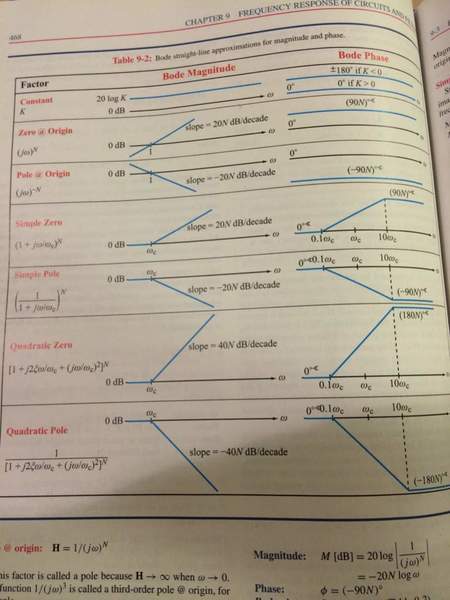 468
CHAPTER 9 FREQUENCY RESPONSE OF CIRCUITS AND
Table 9-2: Bode straight-line approximations for magnitude and phase.
Factor
Bode Magnitude
Bode Phase
Constant
K
20 log K
0 dB
ω
±180° if K < 0
0° if K > 0
0°
Zero @ Origin
(jω)^N
0 dB
1
slope = 20N dB/decade
ω
(90N)°
0°
Pole @ Origin
(jω)^-N
0 dB
1
slope = −20N dB/decade
ω
0°
(−90N)°
Simple Zero
(1 + jω/ωc)^N
0 dB
ωc
slope = 20N dB/decade
ω
(90N)°
0°
0.1ωc
ωc
10ωc
Simple Pole
(1/(1 + jω/ωc))^N
0 dB
ωc
slope = −20N dB/decade
ω
0°
0.1ωc
ωc
10ωc
(−90N)°
Quadratic Zero
[1 + j2ξω/ωc + (jω/ωc)²]^N
0 dB
ωc
slope = 40N dB/decade
ω
(180N)°
0°
0.1ωc
ωc
10ωc
Quadratic Pole
1/[1 + j2ξω/ωc + (jω/ωc)²]^N
0 dB
ωc
slope = −40N dB/decade
ω
0°
0.1ωc
ωc
10ωc
(−180N)°
@ origin: H = 1/(jω)^N
his factor is called a pole because H → ∞ when ω → 0.
function 1/(jω)³ is called a third-order pole @ origin, for
Magnitude: M [dB] = 20 log |1/(jω)^N|
= −20N log ω
Phase: ϕ = (−90N)°